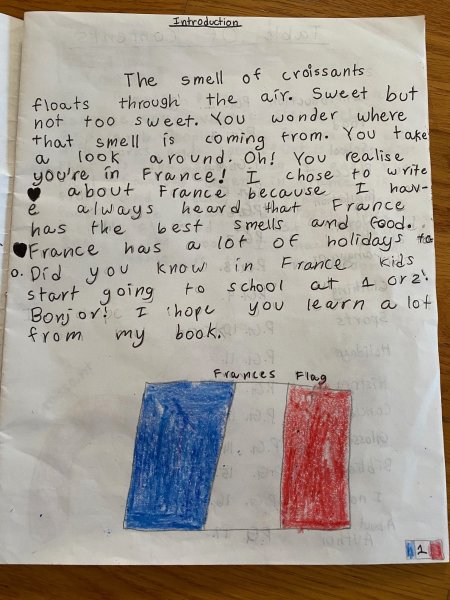 Introduction
The smell of croissants
floats through the air. Sweet but
not too sweet. You wonder where
that smell is coming from. You take
a look around. Oh! You realise
you're in France! I chose to write
about France because I hav-
e always heard that France
has the best smells and food.
France has a lot of holidays to
o. Did you know in France kids
start going to school at 1 or 2!
Bonjor! I hope you learn a lot
from my book.
Frances Flag
1